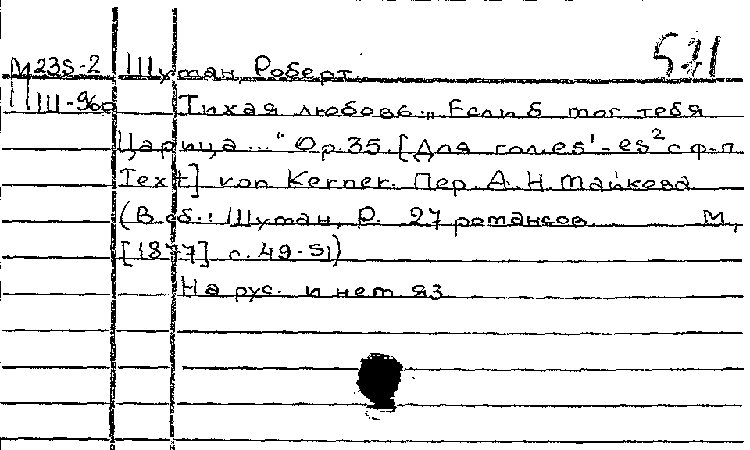 М 235-2 Шуман, Роберт 571
Ш-960 Тихая любовь. „Если б мог тебя
Царица..." Op. 35. [Для гол. es¹-es² с ф-п
Text] von Kerner. Пер. А. Н. Майкова
(В сб.: Шуман, Р. 27 романсов М,
[1877] с. 49-51)
На рус. и нем. яз